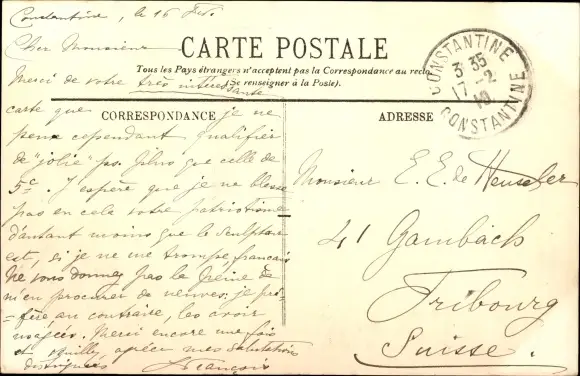 Constantine, le 16 Fév.
Cher Monsieur
CARTE POSTALE
Tous les Pays étrangers n'acceptent pas la Correspondance au recto
(Se renseigner à la Poste).
Merci de votre très intéressante
CORRESPONDANCE
carte que je ne
peux cependant qualifier
de "jolie" pas plus que celle de
5c. J'espère que je ne blesse
pas en cela votre patriotisme
d'autant moins que le sculpteur
est, si je ne me trompe, français
Ne vous donnez pas la peine de
m'en procurer de neuves: je pré-
-fère au contraire, les avoir
usagées. Merci encore une fois
et veuillez agréer mes salutations
distinguées François
CONSTANTINE
3 35
17 - 2
10
CONSTANTINE
ADRESSE
Monsieur E. E. de Heuseler
41 Gambach
Fribourg
Suisse.